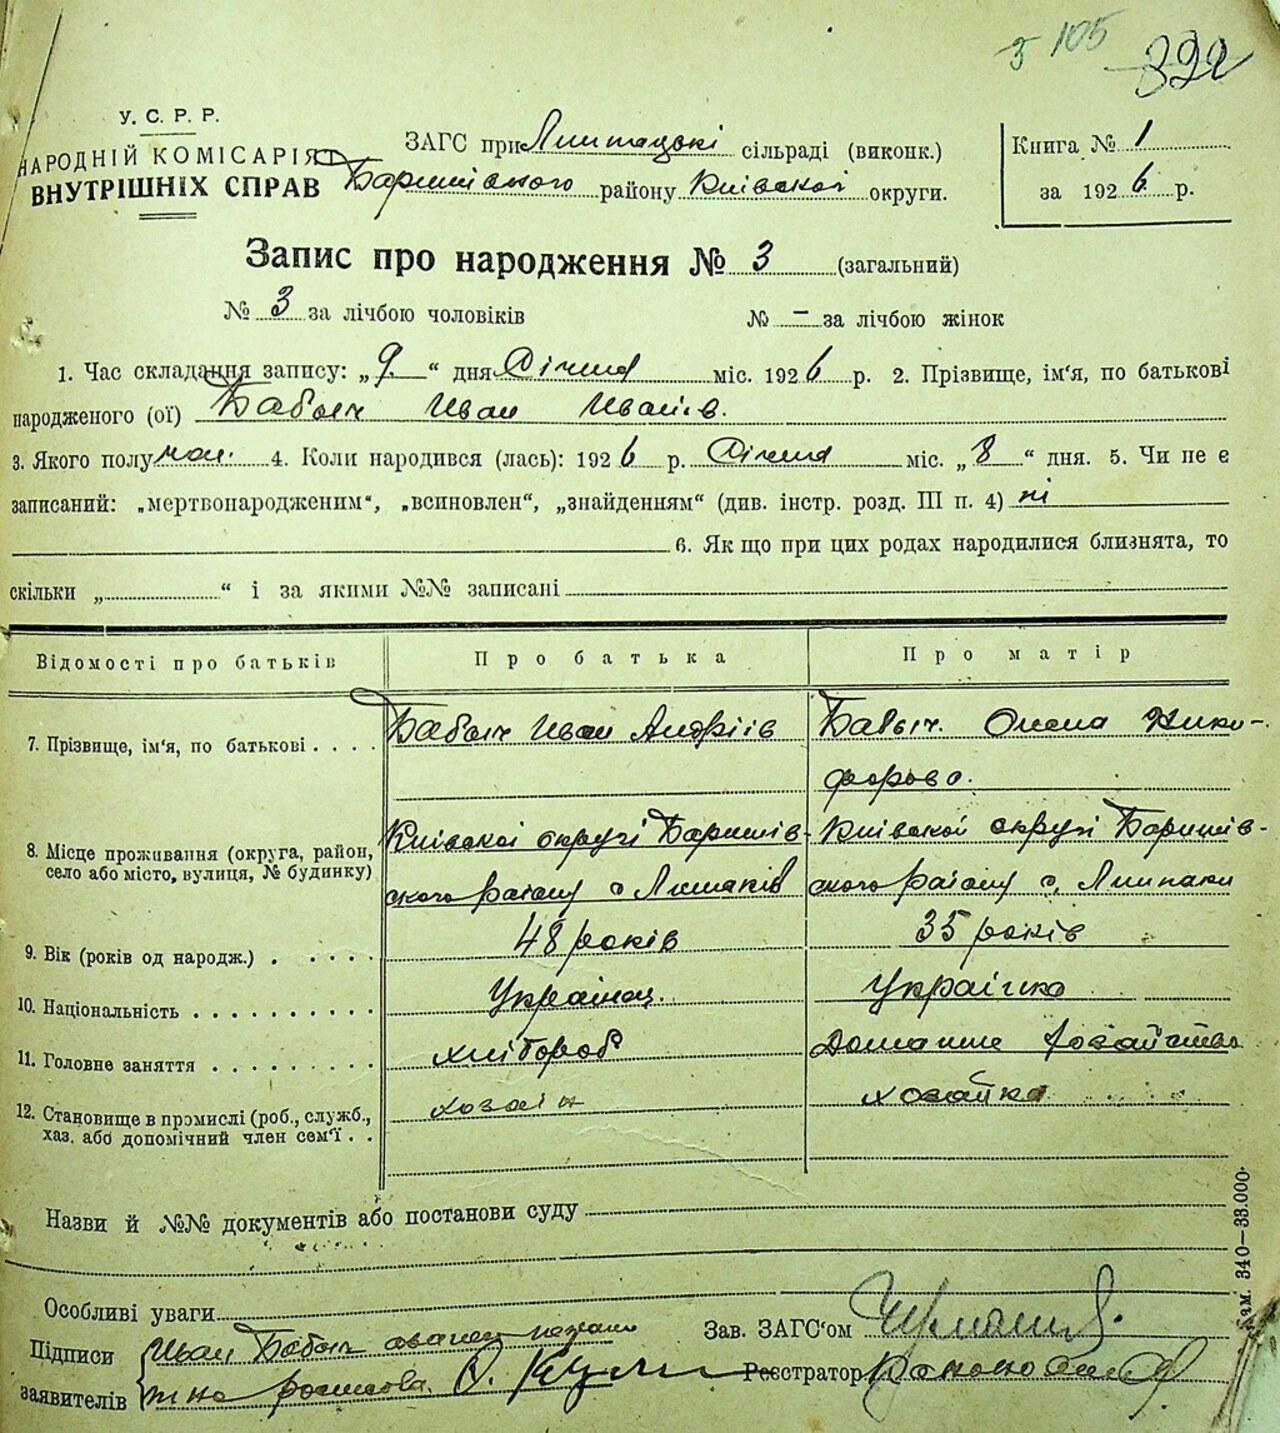 105
392
У. С. Р. Р.
НАРОДНІЙ КОМІСАРІЯТ
ВНУТРІШНІХ СПРАВ
ЗАГС при Липпацькі сільраді (виконк.)
Баришівського району Київскої округи.
Книга № 1
за 1926 р.
Запис про народження № 3 (загальний)
№ 3 за лічбою чоловіків № - за лічбою жінок
1. Час складання запису: „9“ дня Січня міс. 1926 р. 2. Прізвище, ім'я, по батькові
народженого (ої) Бабыч Иван Иванів.
3. Якого полу чол. 4. Коли народився (лась): 1926 р. Січня міс. „8“ дня. 5. Чи не є
записаний: „мертвонародженим“, „всиновлен“, „знайденням“ (див. інстр. розд. III п. 4) ні
6. Як що при цих родах народилися близнята, то
скільки „ “ і за якими №№ записані
Відомості про батьків Про батька Про матір
7. Прізвище, ім'я, по батькові . . . . Бабыч Иван Андріів Бабыч. Олена Ники-
форова.
8. Місце проживання (округа, район,
село або місто, вулиця, № будинку)
Київскоі округі Баришів-
ского раіону с Липаків
Київскоі округі Баришів-
ского раіону с. Липняки
9. Вік (років од народж.) . . . . . 48 років 35 років
10. Національність . . . . . . . . . . Українец. Україінка
11. Головне заняття . . . . . . . . . хлібороб Домашне хозайство
12. Становище в промислі (роб., служб.,
хаз. або допомічний член сем'ї . .
хозаін хозайка
Назви й №№ документів або постанови суду
Особливі уваги
Підписи
заявителів
Иван Бабыч
Зав. ЗАГС'ом
Реєстратор
Зам. 340—33.000.